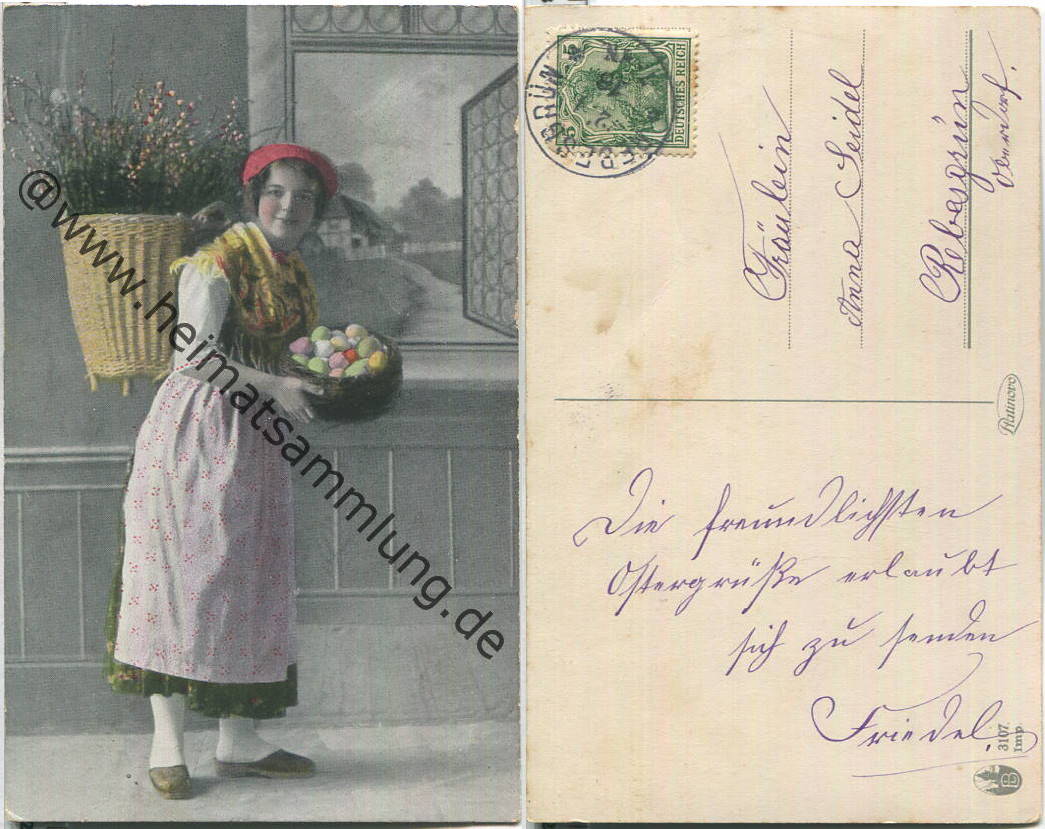 @www.heimatsammlung.de
DEUTSCHES REICH
5
5
Fräulein
Anna Seidel
Rebesgrün
Oberdorf.
Platinovo
Die freundlichsten
Ostergrüße erlaubt
sich zu senden
Friedel.
3107.
Imp.